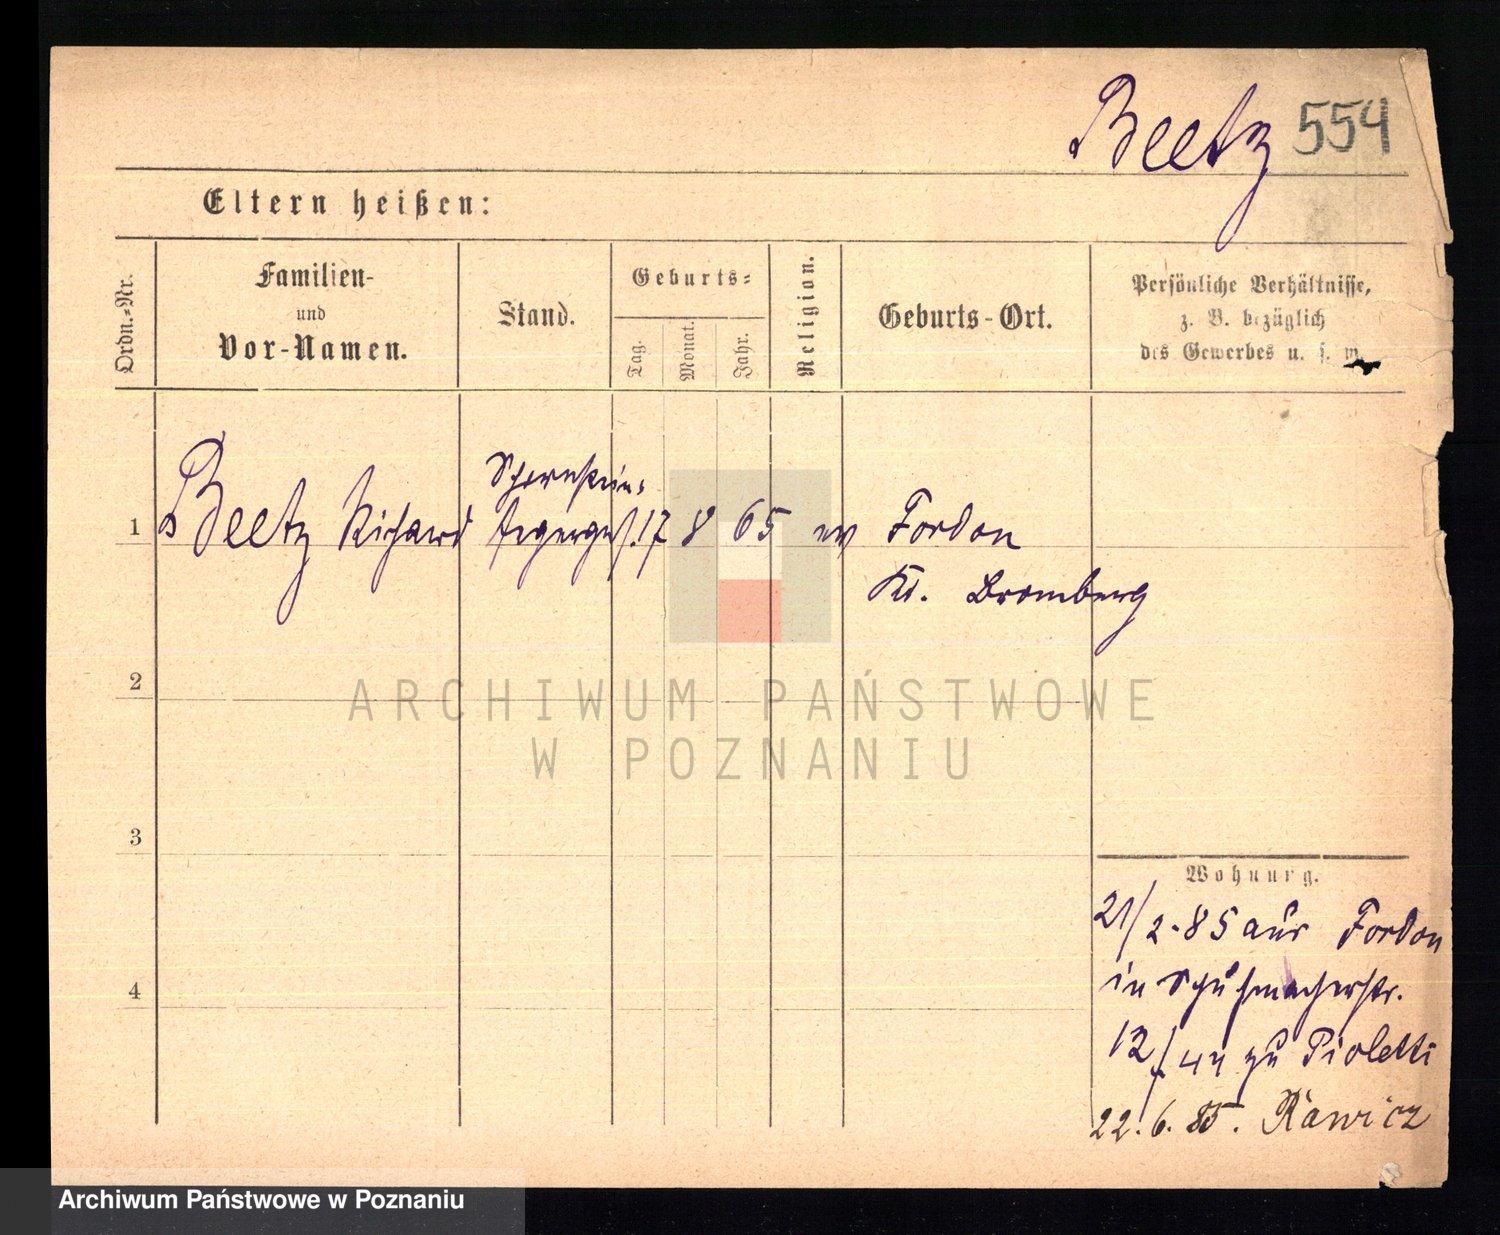 Beetz 554
Eltern heißen:
Ordn.-Nr.
Familien-
und
Vor-Namen.
Stand.
Geburts-
Tag.
Monat.
Jahr.
Religion.
Geburts-Ort.
Persönliche Verhältnisse,
z. B. bezüglich
des Gewerbes u. s. w.
Schornstein-
1 Beetz Richard fegerges. 17 8 65 ev Fordon
Kr. Bromberg
2
ARCHIWUM PAŃSTWOWE
W POZNANIU
3
Wohnung.
21/2.85 aus Fordon
in Schuhmacherstr.
12/ zu Pioletti
4
22.6.85. Rawicz
Archiwum Państwowe w Poznaniu